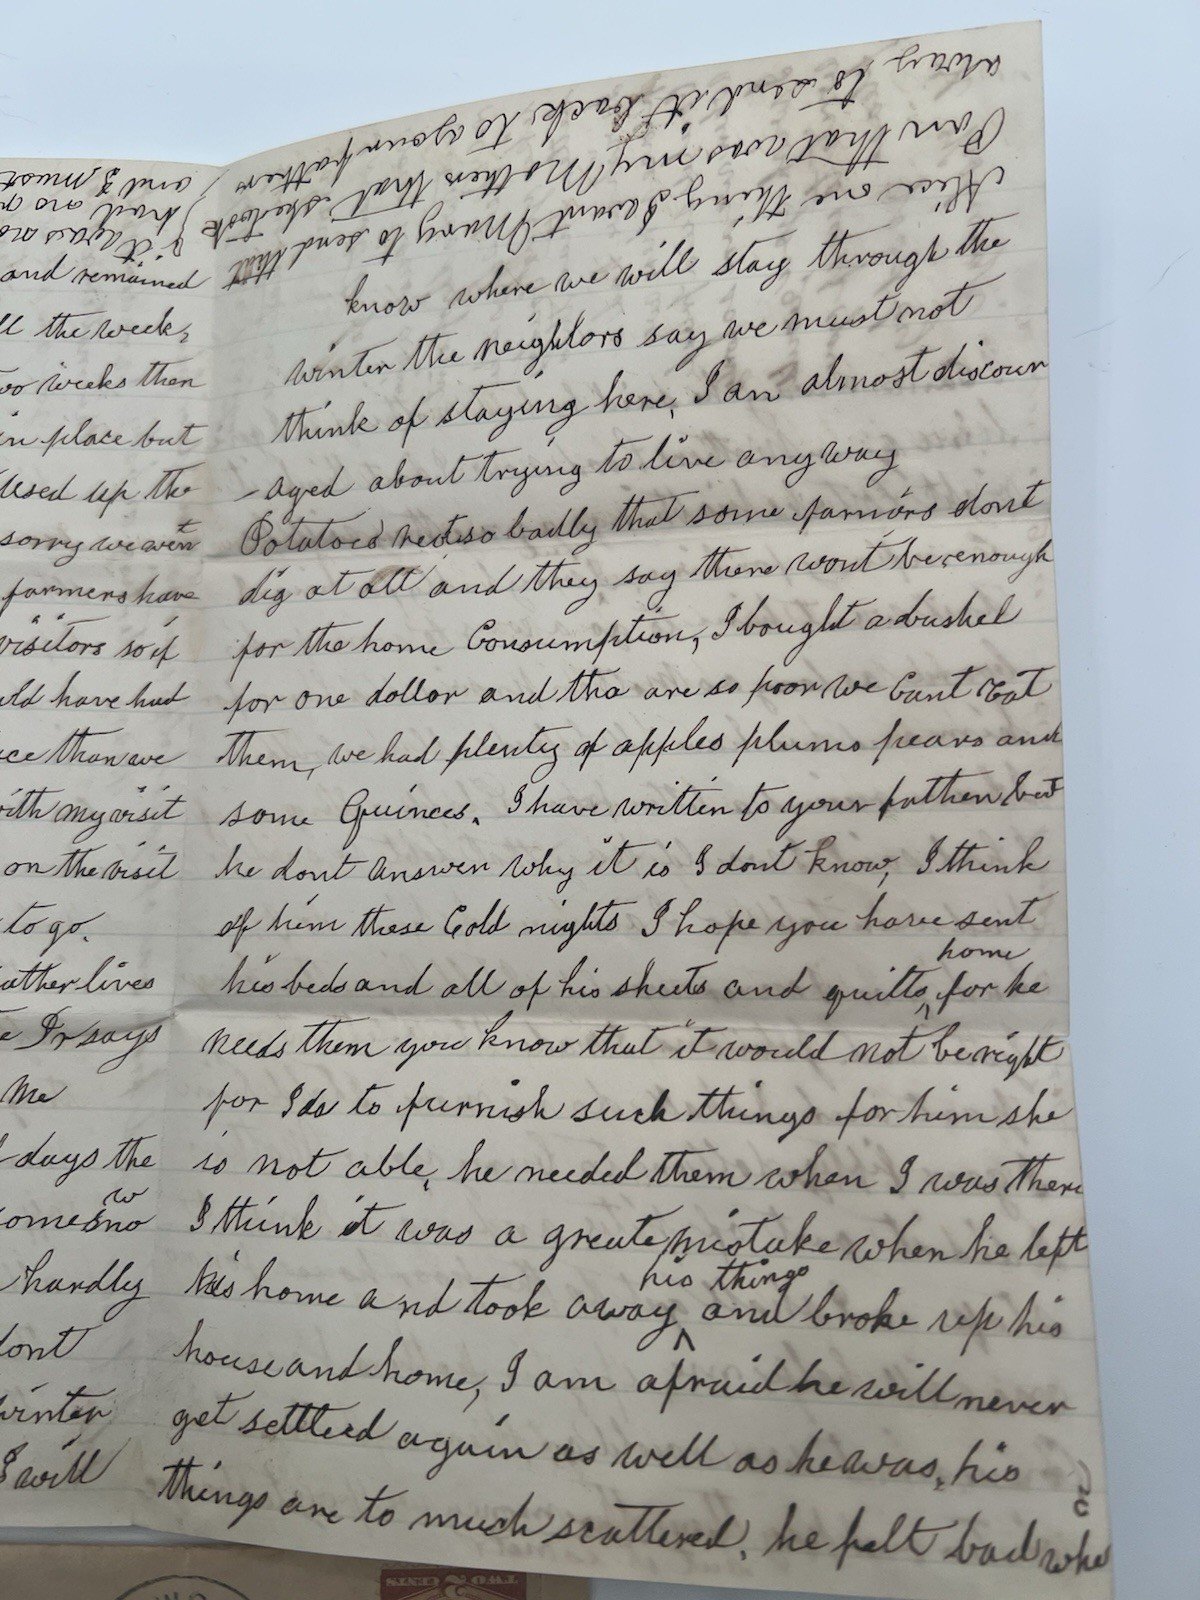 Alice one thing I want Mary to send that
Pan that was my Mothers that she took
away to send it back to your father
and I must
had no
it was no
and remained
ll the week,
two weeks then
in place but
used up the
sorry we wen
farmers have
visitors so if
uld have had
ice than we
with my visit
on the visit
to go.
father lives
Dr says
me
days the
w
some no
hardly
dont
winter
I will
know where we will stay through the
winter the neighbors say we must not
think of staying here, I am almost discour
-aged about trying to live any way
Potatoes rot so badly that some farmers dont
dig at all and they say there wont be enough
for the home Consumption, I bought a bushel
for one dollar and tha are so poor we Cant Eat
them, we had plenty of apples plums pears and
some Quinces. I have written to your father but
he dont answer why it is I dont know, I think
of him these Cold nights I hope you have sent
home
his beds and all of his sheets and quilts ^ for he
needs them you know that it would not be right
for Ida to furnish such things for him she
is not able, he needed them when I was there
I think it was a greate mistake when he left
his things
his home and took away ^ and broke up his
house and home, I am afraid he will never
get settled again as well as he was, his
things are to much scattered, he felt bad whe
TWO 2 CENTS